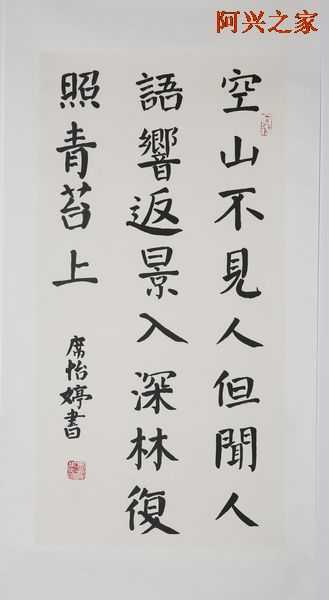 阿兴之家
空山不見人但聞人
語響返景入深林復
照青苔上
席怡婷書